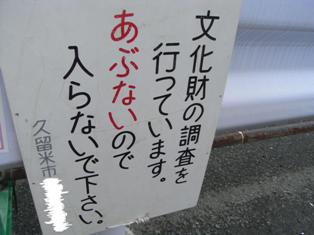 文化財の調査を
行っています。
あぶないので
入らないで下さい。
久留米市